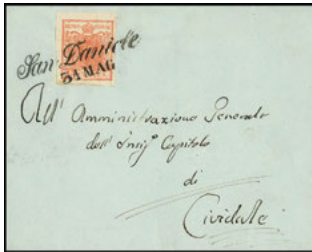 San Daniele
31 MAG
All' Amministrazione Generale
dell' Insig.e Capitolo
di
Cividale